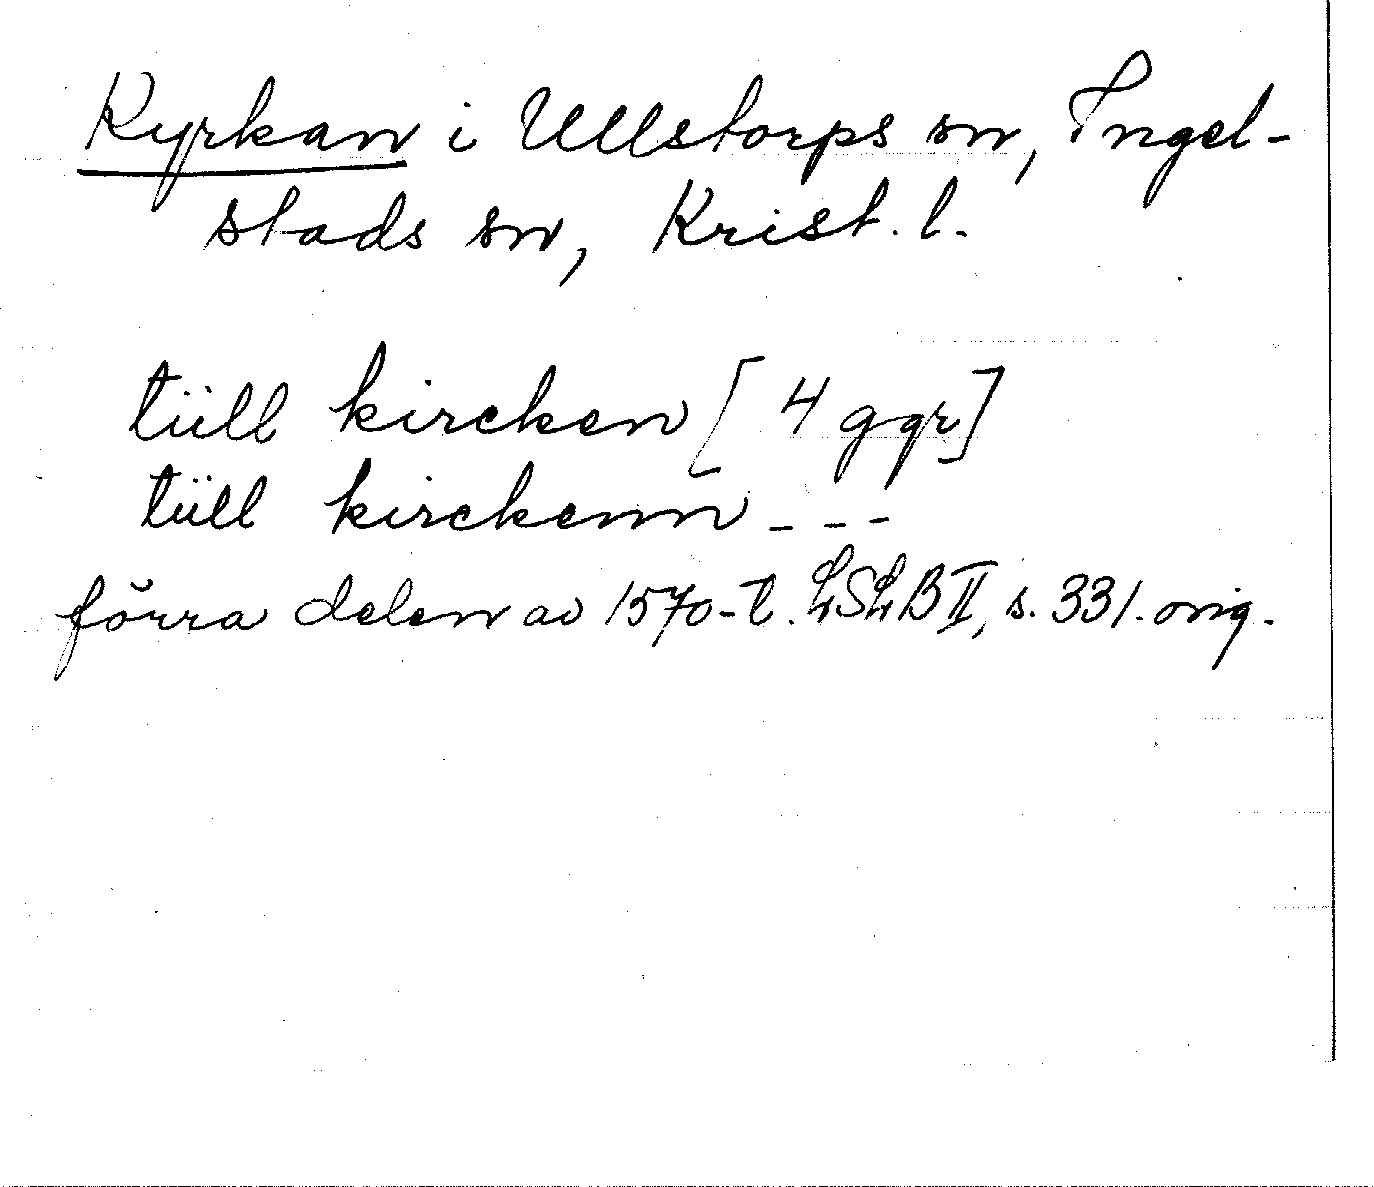 Kyrkan i Ullstorps sn, Ingel-
stads sn, Krist. l.
tüll kircken [4 ggr]
tüll kirckenn - - -
förra delen av 1570-t. LSLB II, s. 331. orig.